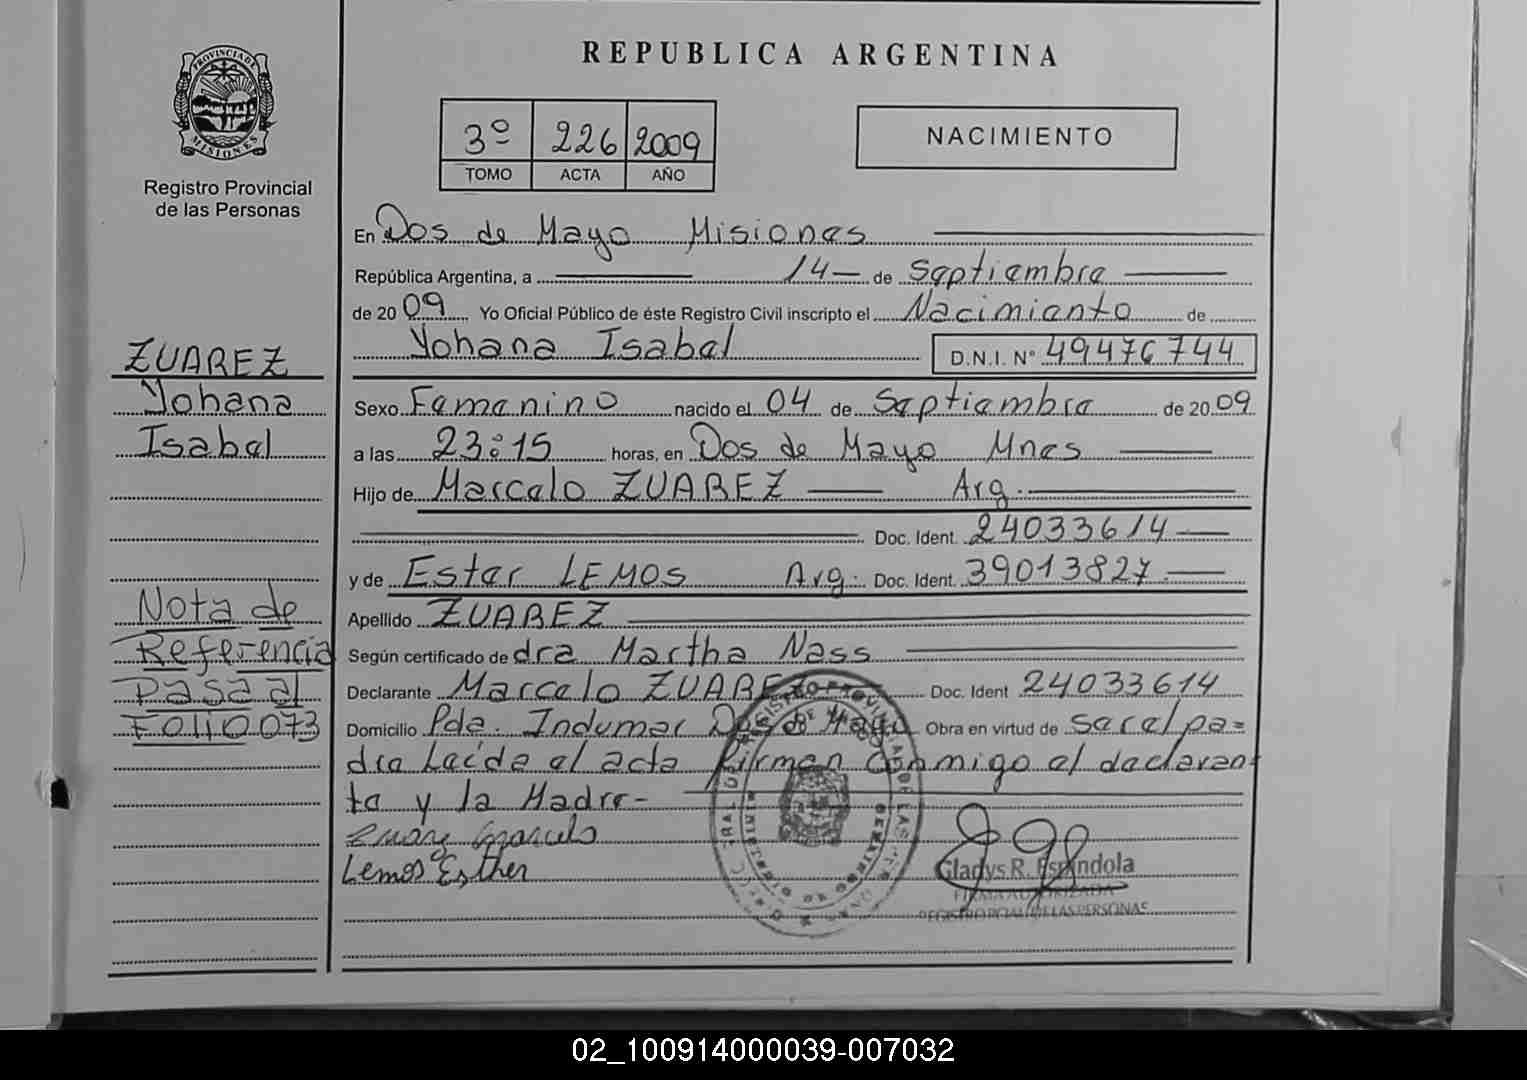 REPUBLICA ARGENTINA
PROVINCIA DE MISIONES
Registro Provincial
de las Personas
3º 226 2009
TOMO ACTA AÑO
NACIMIENTO
En Dos de Mayo Misiones
República Argentina, a 14 de Septiembre
de 2009 Yo Oficial Público de éste Registro Civil inscripto el Nacimiento de
Yohana Isabel D.N.I. Nº 49476744
Sexo Femenino nacido el 04 de Septiembre de 2009
a las 23:15 horas, en Dos de Mayo Mnes
Hijo de Marcelo ZUAREZ Arg.
Doc. Ident. 24033614
y de Ester LEMOS Arg. Doc. Ident. 39013827
Apellido ZUAREZ
Según certificado de dra Martha Nass
Declarante Marcelo ZUAREZ Doc. Ident 24033614
Domicilio Pda. Indumar Dos de Mayo Obra en virtud de ser el pa=
dre Leída el acta Firman conmigo el declaran
te y la Madre-
Marcelo
Lemos Esther
Gladys R. Espindola
FIRMA AUTORIZADA
REGISTRO PCIAL. DE LAS PERSONAS
ZUAREZ
Yohana
Isabel
Nota de
Referencia
Pasa al
Folio 073
02_100914000039-007032